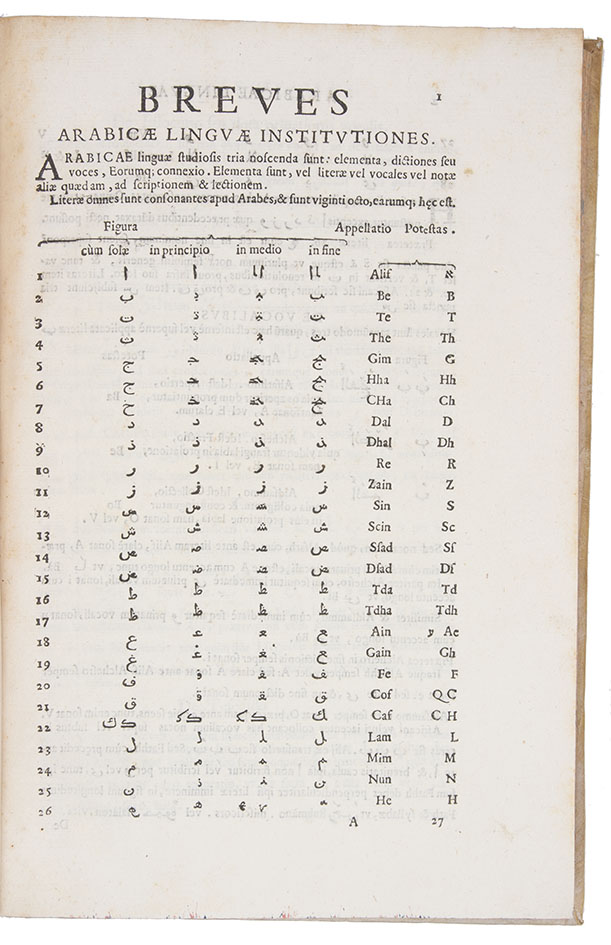 1
BREVES
ARABICÆ LINGVÆ INSTITVTIONES.
ARABICAE linguæ studiosis tria noscenda sunt: elementa, dictiones seu
voces, Eorumq; connexio. Elementa sunt, vel literæ vel vocales vel notæ
aliæ quædam, ad scriptionem & lectionem.
Literæ omnes sunt consonantes apud Arabes, & sunt viginti octo, earumq; hęc est.
Figura Appellatio Potestas.
cùm solæ in principio in medio in fine
1 ا ا ﺎﺎ ﺎﺎ Alif א
2 ب ﺑ ﺒ ﺐ Be B
3 ت ﺗ ﺘ ﺖ Te T
4 ث ﺛ ﺜ ﺚ The Th
5 ج ﺟ ﺠ ﺞ Gim G
6 ح ﺣ ﺤ ﺢ Hha Hh
7 خ ﺧ ﺨ ﺦ CHa Ch
8 د د ﺪ ﺪ Dal D
9 ذ ذ ﺬ ﺬ Dhal Dh
10 ر ر ر ر Re R
11 ز ز ز ز Zain Z
12 س ﺳ ﺴ ﺲ Sin S
13 ش ﺷ ﺸ ﺶ Scin Sc
14 ص ﺻ ﺼ ﺺ Ssad Sſ
15 ض ﺿ ﻀ ﺾ Dsad Dſ
16 ط ط ط ط Tda Td
17 ظ ظ ظ ظ Tdha Tdh
18 ع ﻋ ﻌ ﻊ Ain ע Ae
19 غ ﻏ ﻐ ﻎ Gain Gh
20 ف ﻓ ﻔ ﻒ Fe F
21 ق ﻗ ﻘ ﻖ Cof QC
22 ك ﻛ ﻜ ك Caf CH
23 ل ﻟ ﻠ ﻞ Lam L
24 م ﻣ ﻤ ﻢ Mim M
25 ن ﻧ ﻨ ﻦ Nun N
26 ه ﻫ He H
A 27